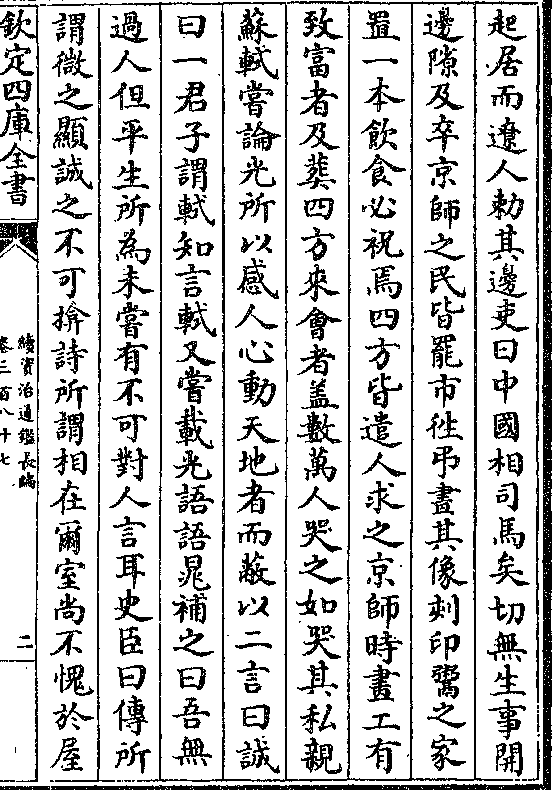 起居而遼人勅其邊吏曰中國相司馬矣切無生事開
邊隙及卒京師之民皆罷市徃弔畫其像刻印鬻之家
置一本飲食必祝焉四方皆遣人求之京師時畫工有
致富者及葬四方來會者葢數萬人哭之如哭其私親
蘇軾嘗論光所以感人心動天地者而蔽以二言曰誠
曰一君子謂軾知言軾又嘗載光語語晁補之曰吾無
過人但平生所為未嘗有不可對人言耳史臣曰傳所
謂微之顯誠之不可揜詩所謂相在爾室尚不愧於屋
欽定四庫全書
續資治通鑑長編
卷三百八十七
二